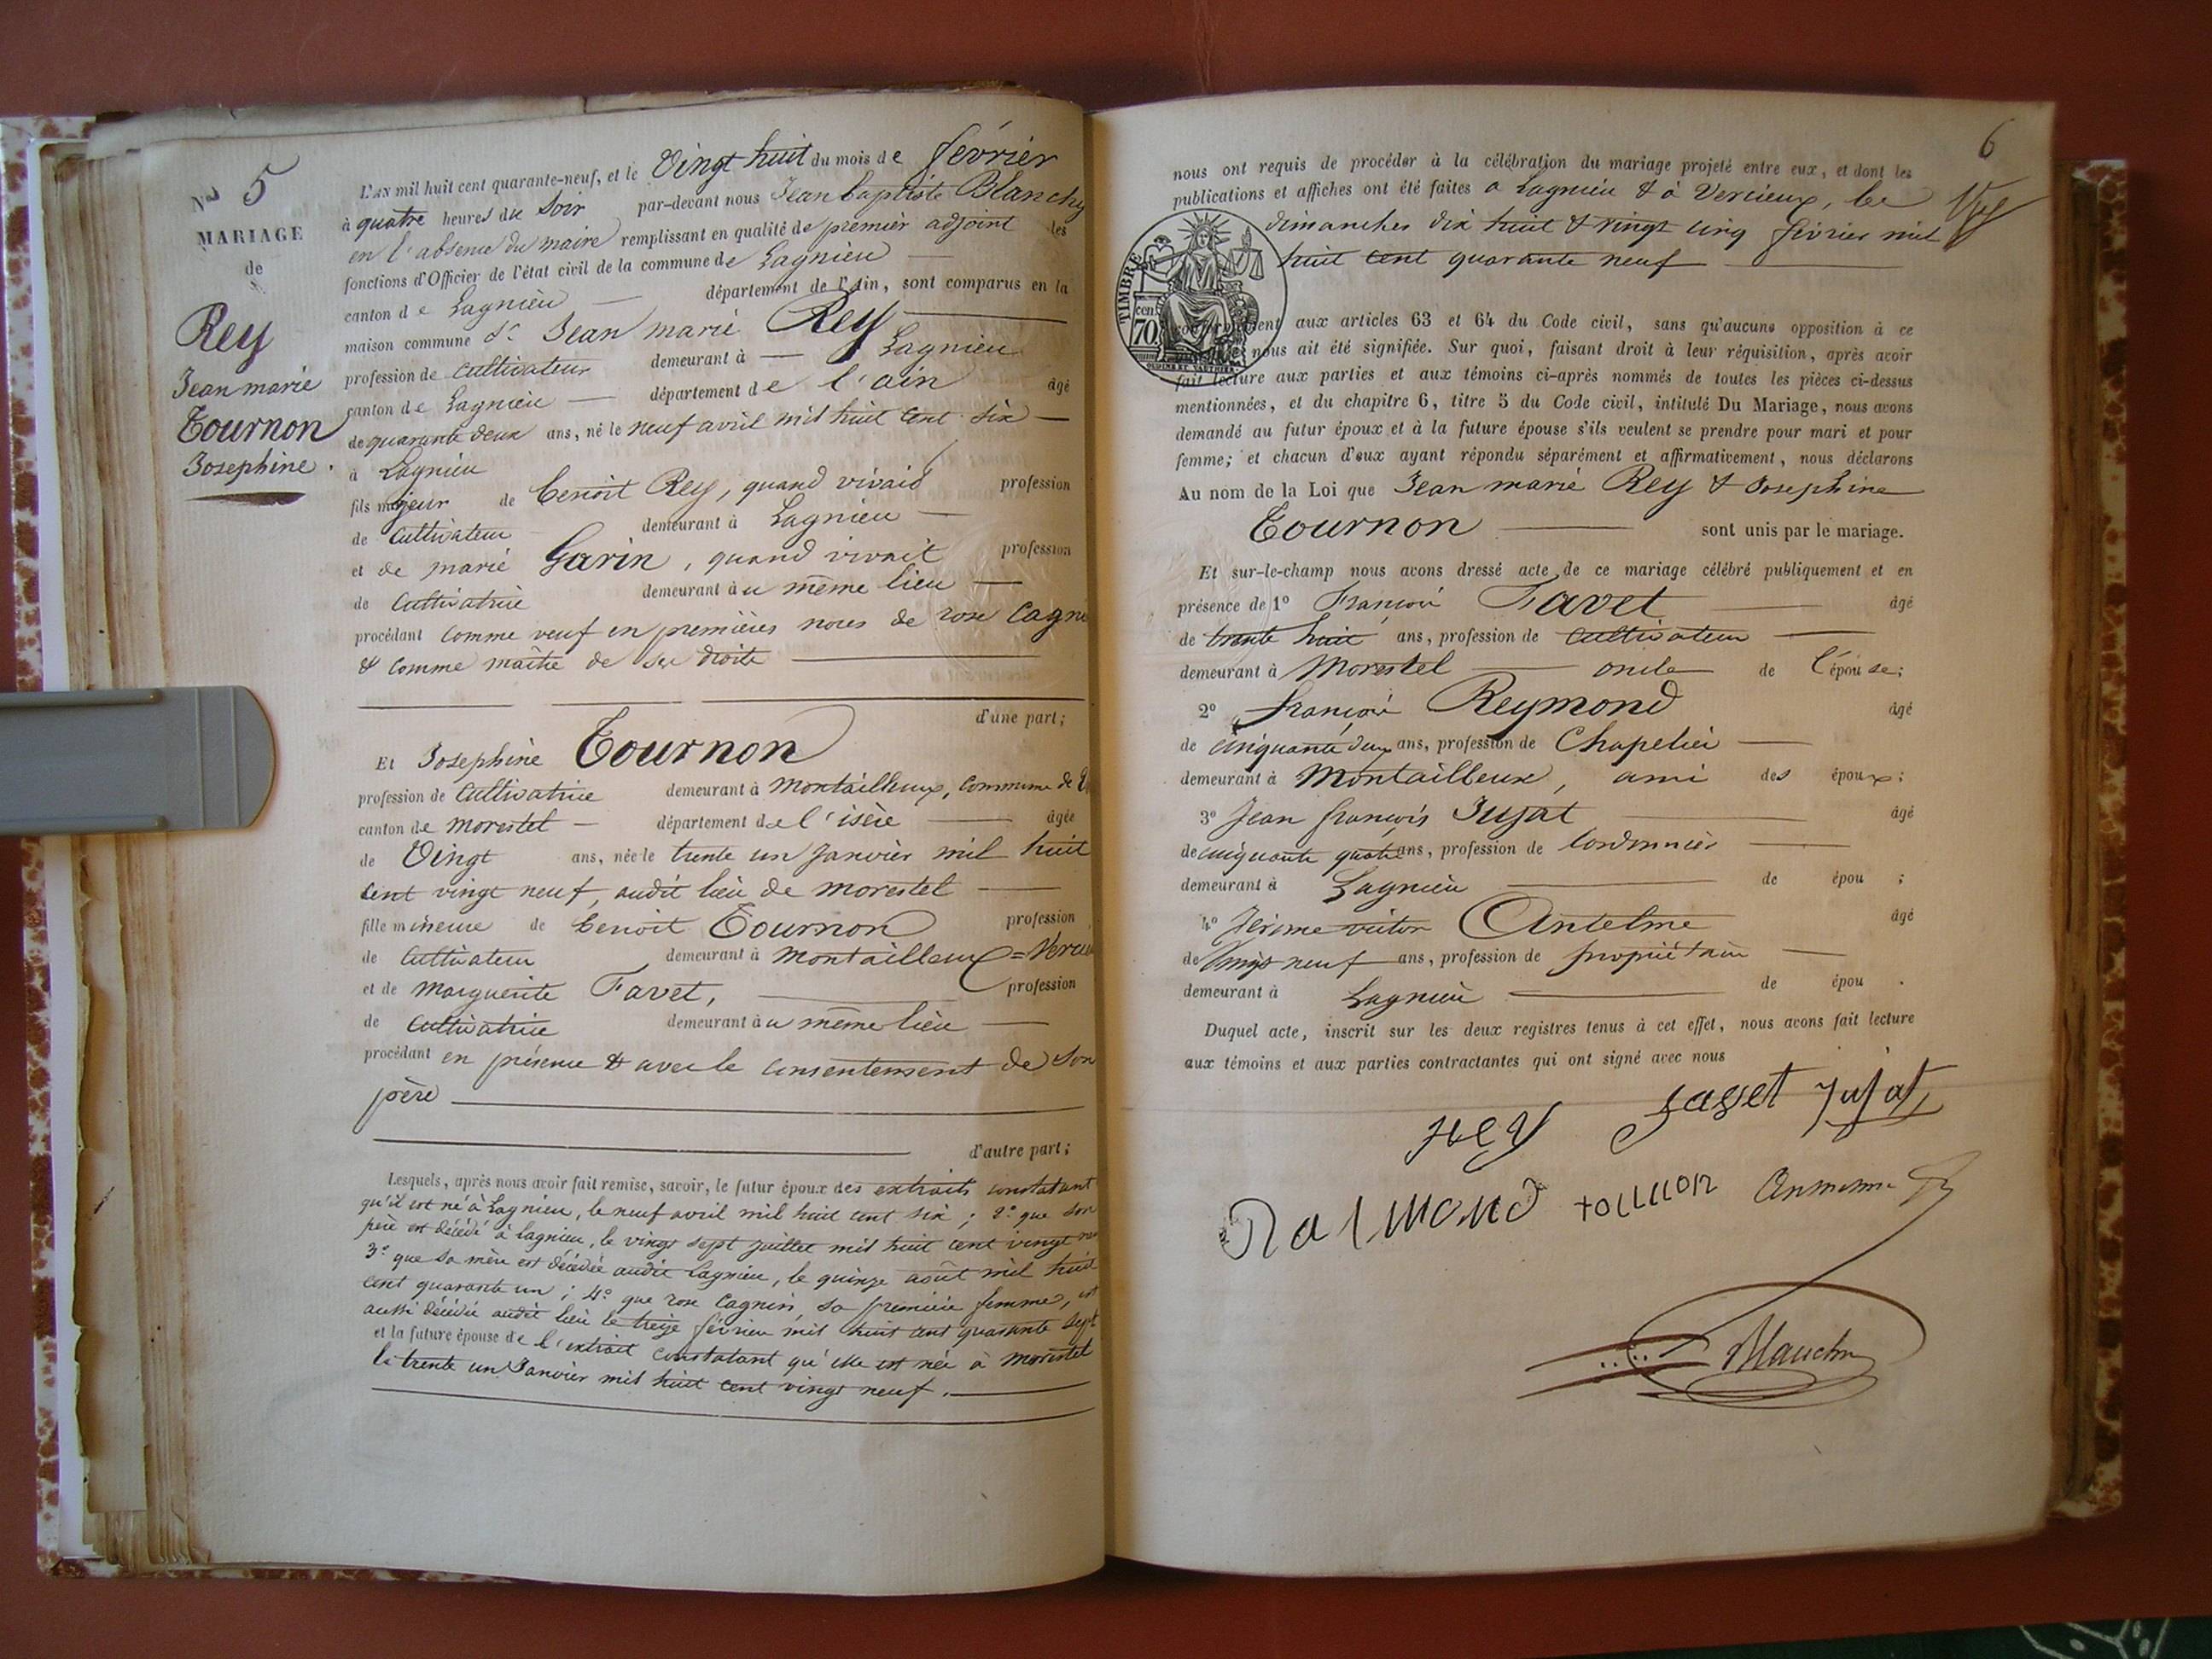 No 5
MARIAGE
de
Rey
Jean marie
Tournon
Josephine.
L'AN mil huit cent quarante-neuf, et le Vingt huit du mois de février
à quatre heures du Soir par-devant nous Jean baptiste Blanchy
en l'absence du maire remplissant en qualité de premier adjoint les
fonctions d'Officier de l'état civil de la commune de Lagnieu
canton de Lagnieu département de l'Ain, sont comparus en la
maison commune Sr Jean marie Rey
profession de cultivateur demeurant à Lagnieu
canton de Lagnieu département de l'ain âgé
de quarante deux ans, né le neuf avril mil huit cent six
à Lagnieu
fils majeur de Benoit Rey, quand vivait profession
de Cultivateur demeurant à Lagnieu
et de marie Garin, quand vivait profession
de Cultivatrice demeurant au même lieu
procédant comme veuf en premières noces de rose Cagni
& comme maître de ses droits
d'une part;
Et Josephine Tournon
profession de Cultivatrice demeurant à Montailleux, commune de
canton de morestel département de l'isère âgée
de Vingt ans, née le trente un Janvier mil huit
cent vingt neuf, audit lieu de morestel
fille mineure de Benoit Tournon profession
de Cultivateur demeurant à Montailleux =
et de marguerite Favet, profession
de Cultivatrice demeurant au même lieu
procédant en présence & avec le consentement de son
père
d'autre part;
Lesquels, après nous avoir fait remise, savoir, le futur époux des extraits constatant
qu'il est né à Lagnieu, le neuf avril mil huit cent six; 2° que son
père est décédé à lagnieu, le vingt sept juillet mil huit cent vingt
3° que sa mère est décédée audit Lagnieu, le quinze août mil huit
cent quarante un; 4° que rose Cagnin, sa première femme, est
aussi décédée audit lieu le treize février mil huit cent quarante sept
et la future épouse de l'extrait constatant qu'elle est née à morestel
le trente un Janvier mil huit cent vingt neuf.
6
nous ont requis de procéder à la célébration du mariage projeté entre eux, et dont les
publications et affiches ont été faites a Lagnieu & à Vercieux, les
dimanches dix huit & vingt cinq février mil
huit cent quarante neuf
TIMBRE
cen.
70
conformément aux articles 63 et 64 du Code civil, sans qu'aucune opposition à ce
mariage nous ait été signifiée. Sur quoi, faisant droit à leur réquisition, après avoir
fait lecture aux parties et aux témoins ci-après nommés de toutes les pièces ci-dessus
mentionnées, et du chapitre 6, titre 5 du Code civil, intitulé Du Mariage, nous avons
demandé au futur époux et à la future épouse s'ils veulent se prendre pour mari et pour
femme; et chacun d'eux ayant répondu séparément et affirmativement, nous déclarons
Au nom de la Loi que Jean marie Rey & Josephine
Tournon sont unis par le mariage.
Et sur-le-champ nous avons dressé acte de ce mariage célébré publiquement et en
présence de 1° François Favet âgé
de trente huit ans, profession de cultivateur
demeurant à Morestel oncle de l'épouse;
2° François Reymond âgé
de cinquante deux ans, profession de Chapelier
demeurant à Montailleux, ami des époux;
3° Jean françois Jujat âgé
de cinquante quatre ans, profession de Cordonnier
demeurant à Lagnieu de épou ;
4° Jérome victor Antelme âgé
de Vingt neuf ans, profession de propriétaire
demeurant à Lagnieu de épou .
Duquel acte, inscrit sur les deux registres tenus à cet effet, nous avons fait lecture
aux témoins et aux parties contractantes qui ont signé avec nous
rey favet Jujat
Raimond tournon
Blanchy